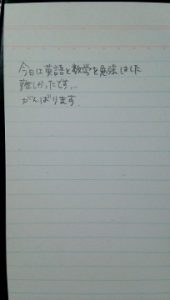 今日は英語と数学を勉強しました
難しかったです。
がんばります